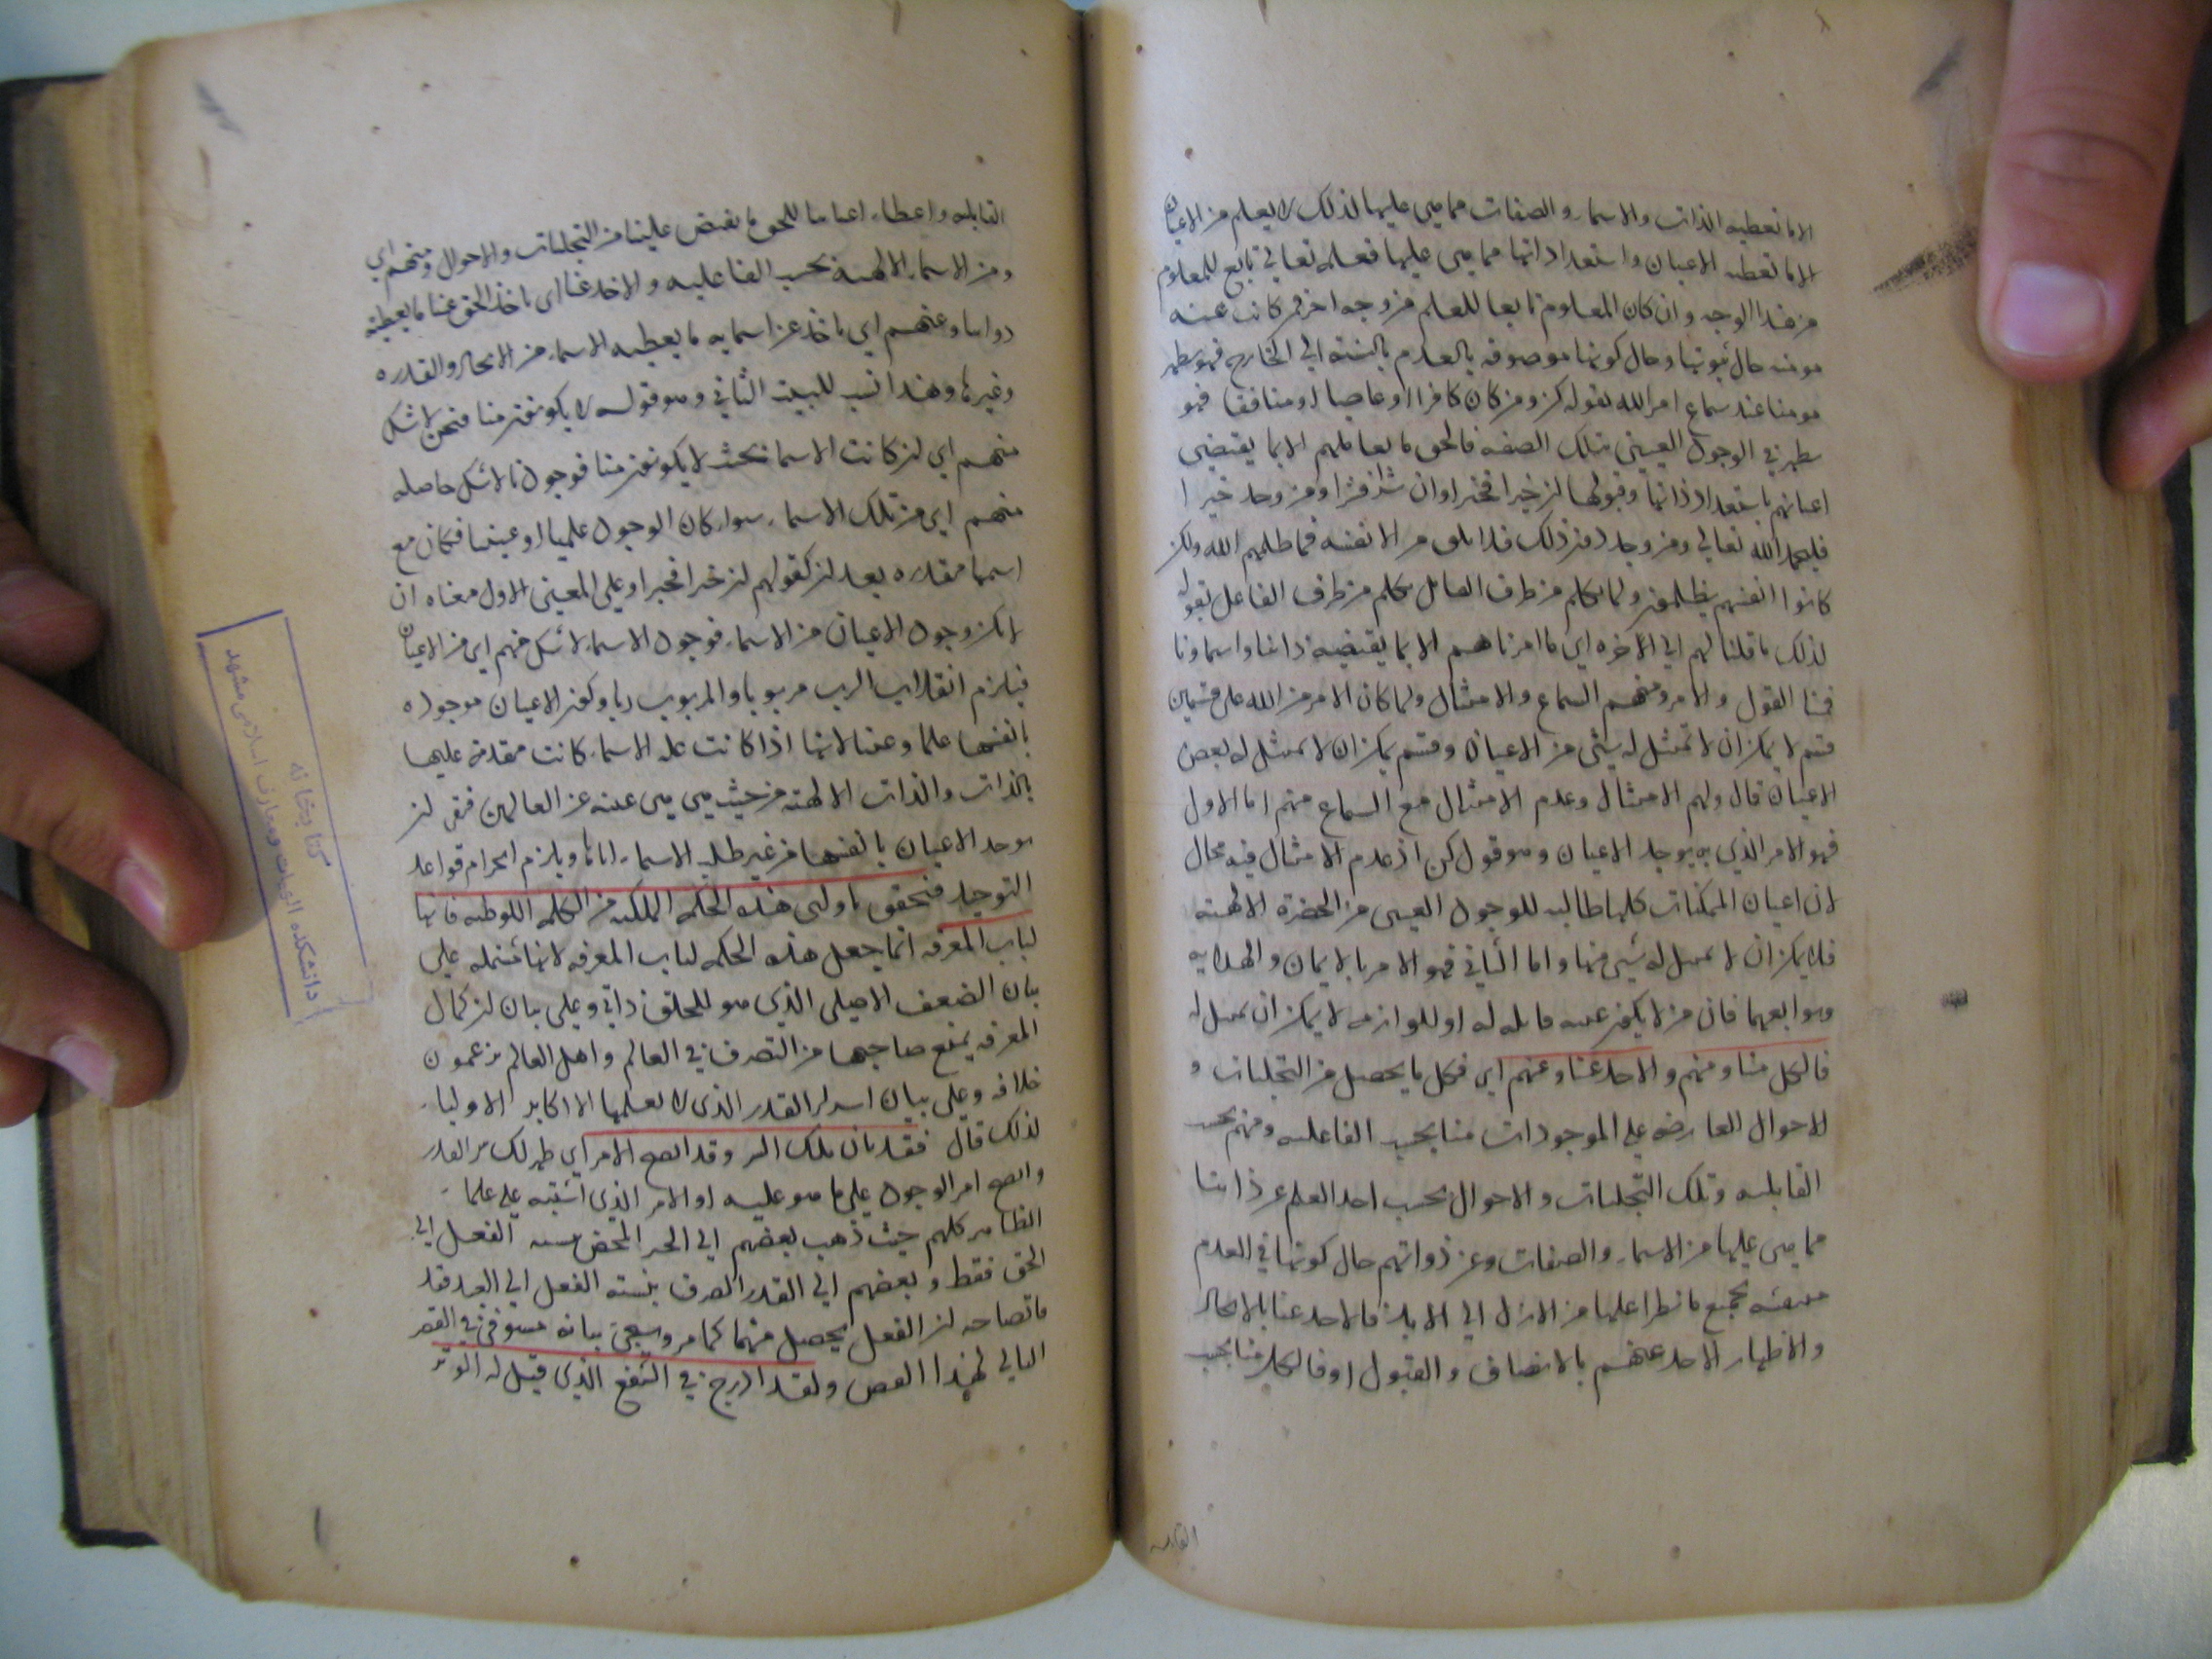 الا ما تعطيه الذات والاسماء والصفات مما هي عليها لذلك لا يعلم من الاعيان
الا ما تعطيه الاعيان واستعداداتها مما هي عليها فعلمه تعالى تابع للمعلوم
من هذا الوجه وان كان المعلوم تابعا للعلم من وجه اخر فمن كانت عينه
مومنه حال ثبوتها وحال كونها موصوفه بالعدم بالنسبة الى الخارج فهو يظهر
مومنا عند سماع امر الله بقوله كن ومن كان كافرا او عاصيا او منافقا فهو
يظهر في الوجود العيني بتلك الصفه فالحق ما يعاملهم الا بما يقتضي
اعيانهم باستعداد ذاتها وقبولها ان خيرا فخيرا وان شرا فشرا ومن وجد خيرا
فليحمد الله تعالى ومن وجد دون ذلك فلا يلومن الا نفسه فما ظلمهم الله ولكن
كانوا انفسهم يظلمون ولما تكلم من طرف القابل تكلم من طرف الفاعل بقوله
لذلك ما قلنا لهم الى الآخره اي ما امرناهم الا بما يقتضيه ذاتنا واسماونا
فمنا القول والامر ومنهم السماع والامتثال ولما كان الامر من الله على قسمين
قسم لا يمكن ان لا تمتثل له شي من الاعيان وقسم يمكن ان لا يمتثل له بعض
الاعيان قال ولهم الامتثال وعدم الامتثال مع السماع منهم اما الاول
فهو الامر الذي به يوجد الاعيان وهو قول كن اذ عدم الامتثال فيه محال
لان اعيان الممكنات كلها طالبه للوجود العيني من الحضرة الالهية
فلا يمكن ان لا يمتثل له شي منها واما الثاني فهو الامر بالايمان والهدايه
وتوابعهما فان من لا يكون عينه قابله له او للوازمه لا يمكن ان يمتثل له
فالكل منا ومنهم والاخذ عنا وعنهم اي فكل ما يحصل من التجليات و
الاحوال العارضه على الموجودات منا بحسب الفاعليه ومنهم بحسب
القابليه وتلك التجليات والاحوال بحسب اخذ العلم عن ذاتنا
مما هي عليها من الاسماء والصفات وعن ذواتهم حال كونها في العدم
بجميع ما يطرا عليها من الازل الى الابد فالاخذ عنا بالايجاد
والاظهار والاخذ عنهم بالاتصاف والقبول او فالكل منا بحسب
القابليه
القابليه واعطاء اعياننا للحق ما يفيض علينا من التجليات والاحوال ومنهم اي
ومن الاسماء الالهية بحسب الفاعليه والاخذ عنا اي ياخذ الحق عنا ما يعطيه
ذواتنا وعنهم اي ياخذ عن اسمايه ما يعطيه الاسماء من الايجاد والقدره
وغيرها وهذا انسب للبيت الثاني وهو قوله لا يكونون منا فنحن لا شك
منهم اي ان كانت الاسماء بحيث لا يكونون منا فوجودنا لا شك حاصله
منهم اي من تلك الاسماء سواء كان الوجود علميا او عينيا فكان مع
اسمها مقدره بعد ان كقولهم ان خيرا فخيرا وعلى المعنى الاول معناه ان
لا يكن وجود الاعيان من الاسماء فوجود الاسماء لا شك منهم اي من الاعيان
فيلزم انقلاب الرب مربوبا والمربوب ربا وكون الاعيان موجوده
بانفسها علما وعينا لانها اذا كانت علة الاسماء كانت مقدمة عليها
بالذات والذات الالهية من حيث هي هي غنيه عن العالمين فبقي ان
يوجد الاعيان بانفسها من غير طلب الاسماء اياها ويلزم انخرام قواعد
التوحيد فتحقق يا ولي هذه الحكمه الملكيه من الكلمه اللوطيه فانها
لباب المعرفه انما جعل هذه الحكمه لباب المعرفه لانها مشتمله على
بيان الضعف الاصلي الذي هو للخلق ذاتي وعلى بيان ان كمال
المعرفه يمنع صاحبها من التصرف في العالم واهل العالم يزعمون
خلافه وعلى بيان اسرار القدر الذي لا يعلمها الا اكابر الاولياء
لذلك قال فقد بان لك السر وقد اتضح الامر اي ظهر لك سر القدر
واتضح امر الوجود على ما هو عليه او الامر الذي اشتبه على علماء
الظاهر كلهم حيث ذهب بعضهم الى الجبر المحض بنسبه الفعل الى
الحق فقط وبعضهم الى القدر الصرف بنسبة الفعل الى العبد فقد
ان الفعل يحصل منهما كما مر وسيجي بيانه مستوفى في الفص
التالي لهذا الفص ولقد ادرج في الشفع الذي قيل له الوتر
كتابخانه
دانشكده الهيات ومعارف اسلامى مشهد